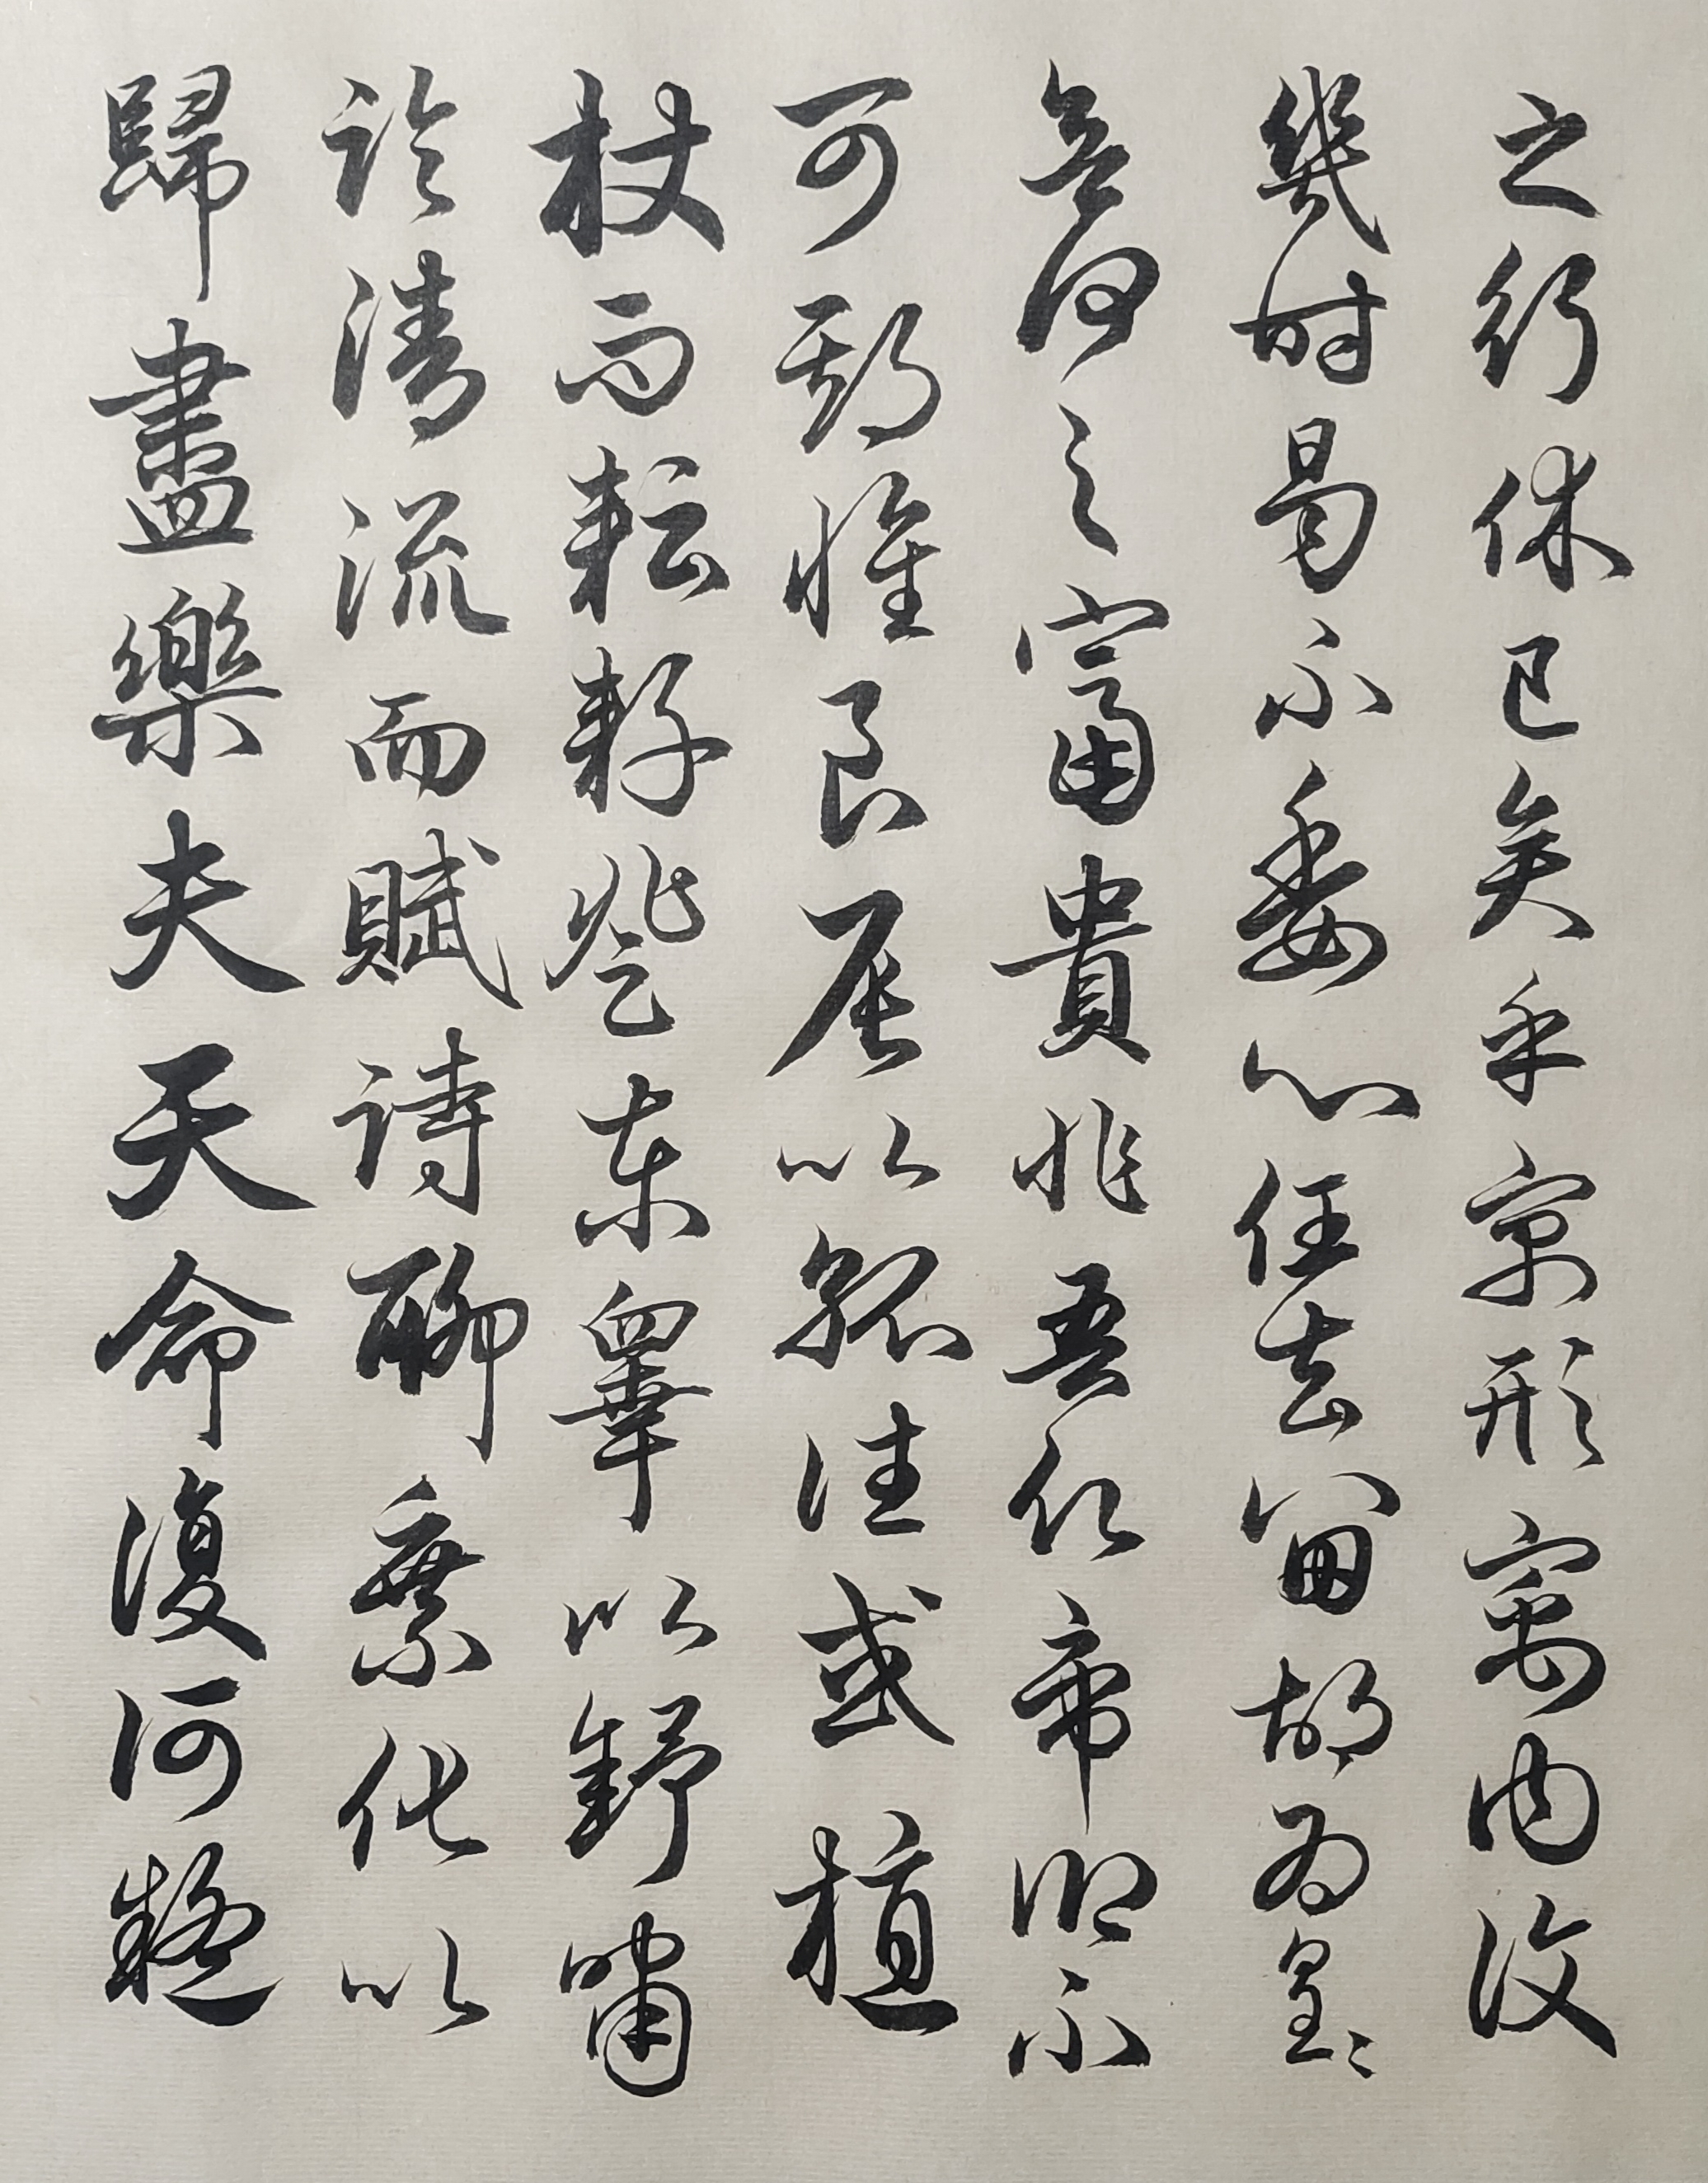 之行休已矣乎寓形寓内復
幾時曷不委心任去留胡為皇〻
何之富貴非吾願帝鄉不
可期懷良辰以孤往或植
杖而耘耔登東皋以舒嘯
臨清流而賦詩聊乘化以
歸盡樂夫天命復何疑